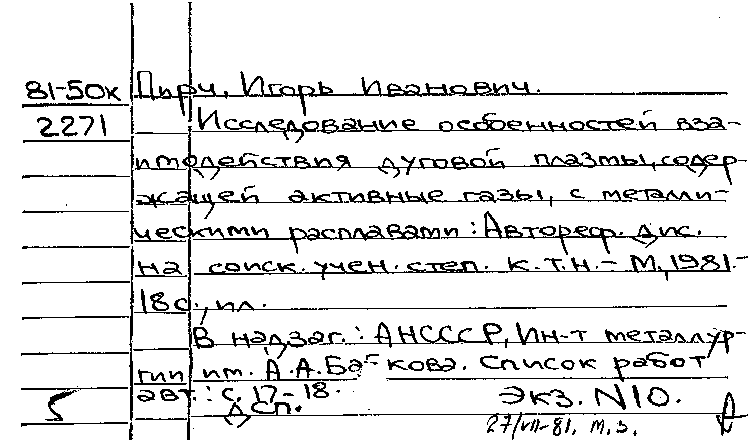 81-50к Пирч, Игорь Иванович.
2271 Исследование особенностей вза-
имодействия дуговой плазмы, содер-
жащей активные газы, с металли-
ческими расплавами: Автореф. дис.
на соиск. учен. степ. к.т.н. - М, 1981.-
18с., ил.
В надзаг.: АНСССР, Ин-т металлур-
гии им. А.А.Байкова. Список работ
авт.: с. 17-18.
5 ДСП. Экз. N10.
27/VII-81. м.з.